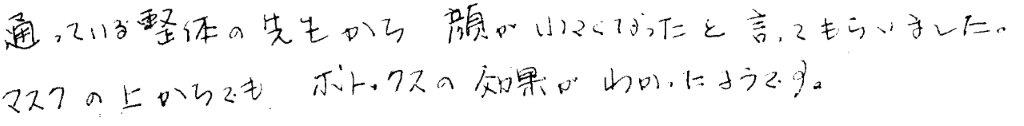 通っている整体の先生から 顔が小さくなったと言ってもらいました。
マスクの上からでも ボトックスの効果がわかったようです。